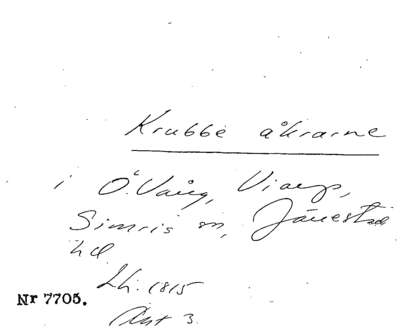 Krubbe åkrarne
i Ö. Vång, Viarp,
Simris sn, Järrestad
hd.
Lh. 1815
Akt 3.
Nr 7705.